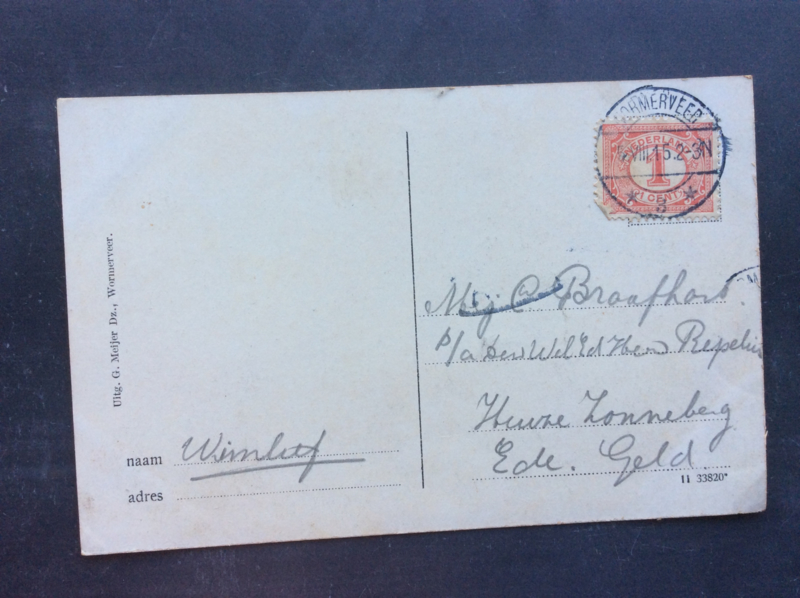 WORMERVEER
VIII.15.2-3N
* 3 *
NEDERLAND
1
1 CENT
Mej C Braafhart.
p/a den Wel Ed Heer Repelius
Huize Zonneberg
Ede. Geld.
Uitg. G. Meijer Dz., Wormerveer.
naam
adres
11 33820*